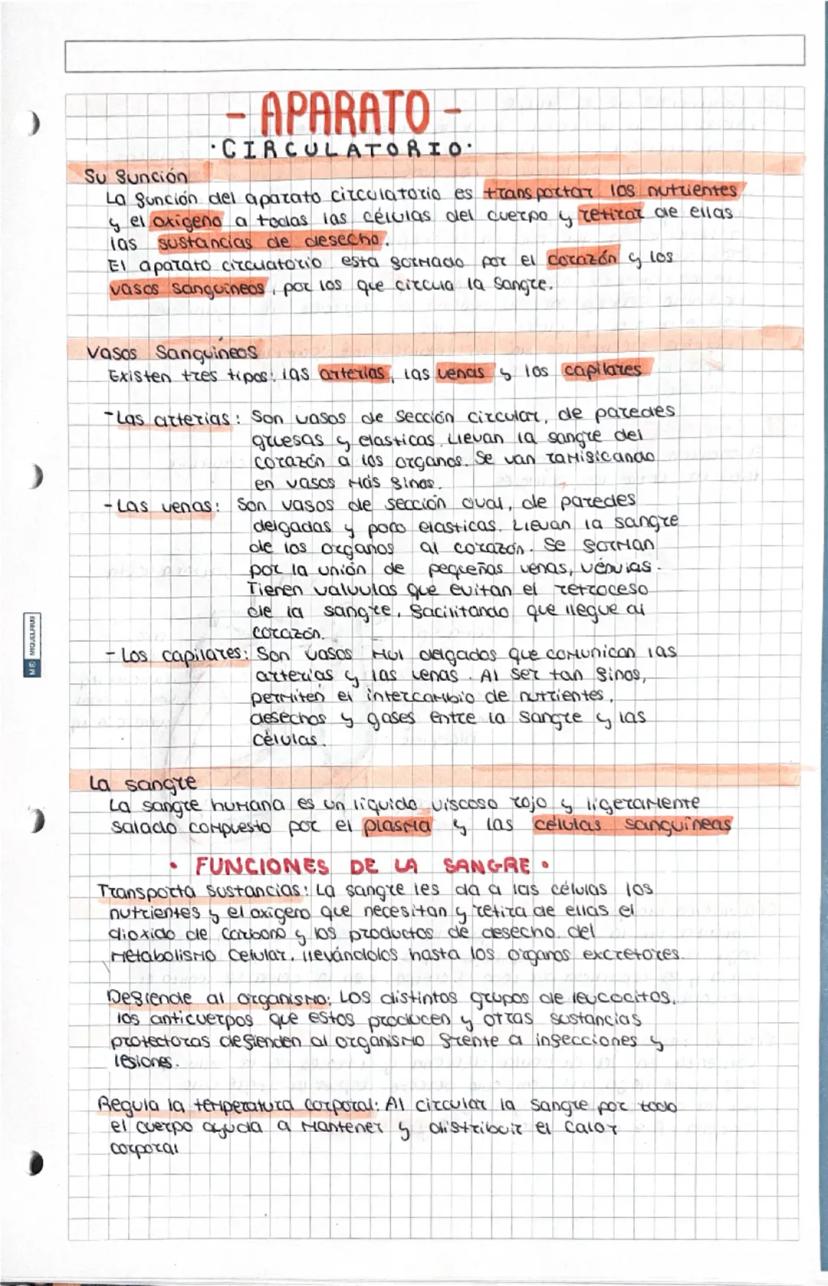 - APARATO -
· CIRCULATORIO ·
Su función
La función del aparato circulatorio es transportar los nutrientes
y el oxígeno a todas las células del cuerpo y retirar de ellas
las sustancias de desecho.
El aparato circuatorio esta formado por el corazón y los
vasos sanguíneos, por los que circula la sangre.
Vasos Sanguíneos
Existen tres tipos: las arterias, las venas y los capilares
- Las arterias: Son vasos de sección circular, de paredes
gruesas y elasticas. Llevan la sangre del
corazón a los organos. Se van ramificando
en vasos más finos.
- Las venas: Son vasos de sección oval, de paredes
delgadas y poco elasticas. Llevan la sangre
de los organos al corazón. Se forman
por la unión de pequeñas venas, vénulas.
Tienen valvulas que evitan el retroceso
de la sangre, facilitando que llegue al
corazón.
- Los capilares: Son vasos mui delgados que comunican las
arterias y las venas. Al ser tan finos,
permiten el intercambio de nutrientes,
desechos y gases entre la sangre y las
células.
La sangre
La sangre humana es un líquido viscoso rojo y ligeramente
salado compuesto por el plasma y las células sanguíneas
· FUNCIONES DE LA SANGRE ·
Transporta sustancias: La sangre les da a las células los
nutrientes y el oxígeno que necesitan y retira de ellas el
dioxido de carbono y los productos de desecho del
metabolismo celular, llevándolos hasta los órganos excretores.
Defiende al organismo: Los distintos grupos de leucocitos,
los anticuerpos que estos producen y otras sustancias
protectoras defienden al organismo frente a infecciones y
lesiones.
Regula la temperatura corporal: Al circular la sangre por todo
el cuerpo ayuda a mantener y distribuir el calor
corporal
MIQUELRIUS